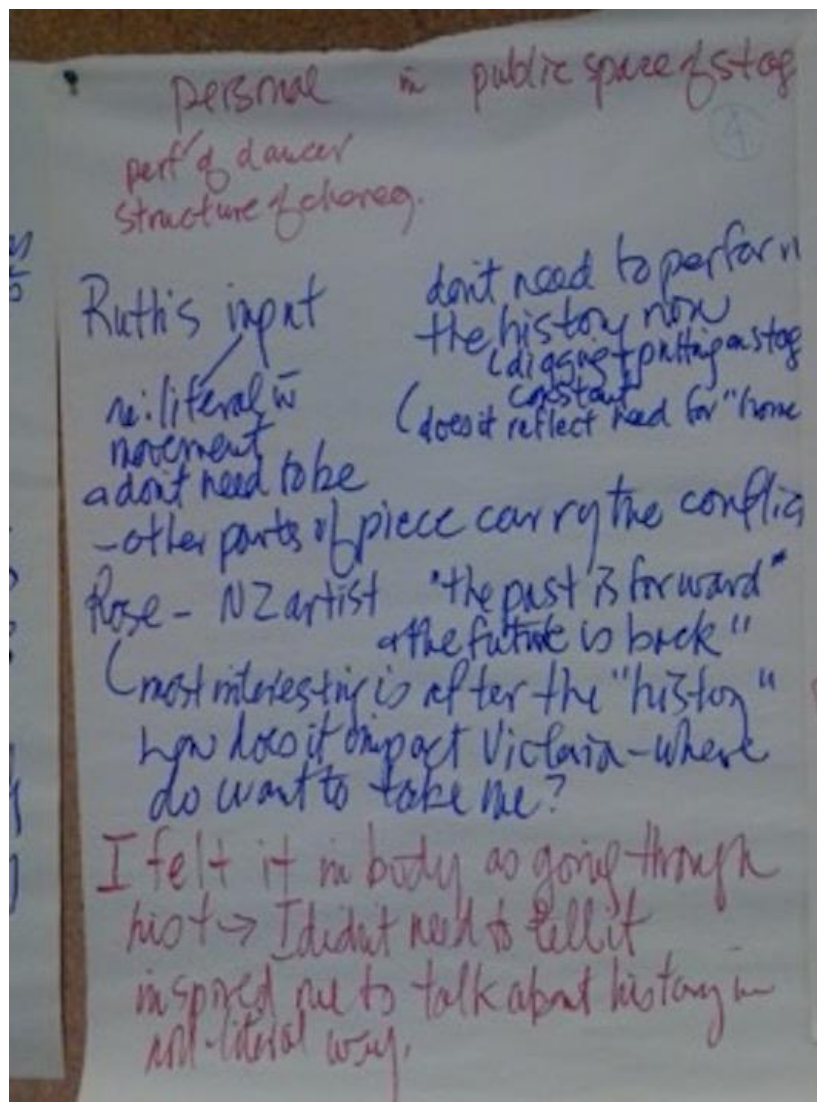 personal in public space of stag
4
perf of dancer
structure of choreg.
Ruth's input
re: literal w
movement
don't need to be
- other parts of piece carry the conflic
dont need to perform
the history now
(digging + putting on stag
constant
(does it reflect need for "home
Rose - NZ artist "the past is forward"
the future is back"
(most interesting is after the "history"
how does it impact Victoria - where
do want to take me?
I felt it in body as going through
hist → I didn't need to tell it
inspired me to talk about history in
non-literal way.